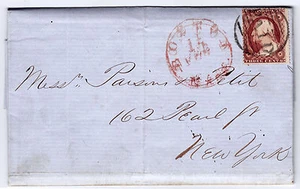 BOSTON
MAS
THREE CENTS
Messrs Parsons & Petit
162 Pearl St
New York